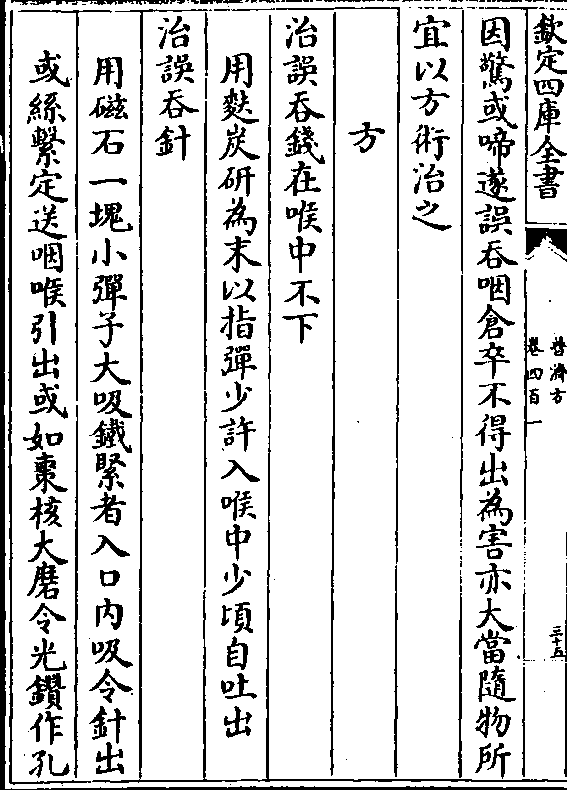 欽定四庫全書
普濟方
卷四百一
三十五
因驚或啼遂誤吞咽倉卒不得出為害亦大當隨物所
宜以方術治之
方
治誤吞錢在喉中不下
用麩炭研為末以指彈少許入喉中少頃自吐出
治誤吞針
用磁石一塊小彈子大吸鐵緊者入口内吸令針出
或絲繫定送咽喉引出或如棗核大磨令光鑽作孔